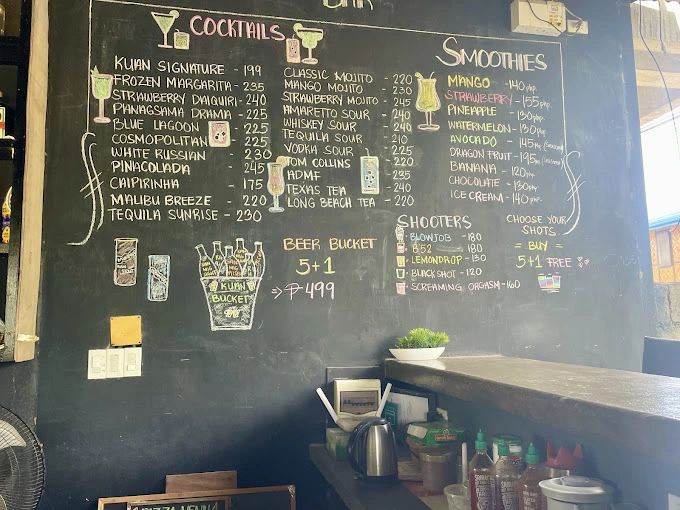 BAR
COCKTAILS
KUAN SIGNATURE - 199
FROZEN MARGARITA - 235
STRAWBERRY DAIQUIRI - 240
PANAGSAMA DRAMA - 225
BLUE LAGOON - 225
COSMOPOLITAN - 225
WHITE RUSSIAN - 230
PINACOLADA - 245
CAIPIRINHA - 175
MALIBU BREEZE - 220
TEQUILA SUNRISE - 230
CLASSIC MOJITO - 220
MANGO MOJITO - 230
STRAWBERRY MOJITO - 245
AMARETTO SOUR - 240
WHISKEY SOUR - 240
TEQUILA SOUR - 210
VODKA SOUR - 225
TOM COLLINS - 220
ADMF - 235
TEXAS TEA - 240
LONG BEACH TEA - 220
SMOOTHIES
MANGO - 140 php.
STRAWBERRY - 155 php.
PINEAPPLE - 130 php.
WATERMELON - 130 php.
AVOCADO - 145 php
DRAGON FRUIT - 195 php
BANANA - 120 php
CHOCOLATE - 130 php
ICE CREAM - 140 php.
SHOOTERS
BLOWJOB - 180
B'52 - 180
LEMONDROP - 130
BLACKSHOT - 120
SCREAMING ORGASM - 160
CHOOSE YOUR
SHOTS
= BUY =
5+1 FREE
BEER BUCKET
5+1
=> ₱ 499
KUAN
BUCKET